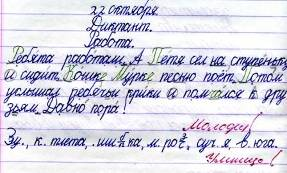 22 октября.
Диктант.
Работа.
Ребята работали. А Петя сел на ступеньку
и сидит. Кошке Мурке песню поёт. Потом
услышал ребячьи крики и помчался к дру
зьям. Давно пора!
Молодец!
Зу., к. тлета,
ка, м. ро
суч. я. в. юга.
Умница!